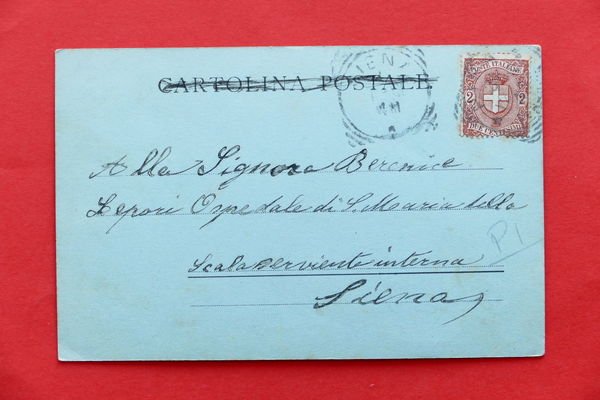 CARTOLINA POSTALE
SIENA
POSTE ITALIANE
2 2
DUE CENTESIMI
Alla Signora Berenice
Lepori Ospedale di S. Maria della
Scala serviente interna
Siena
P1